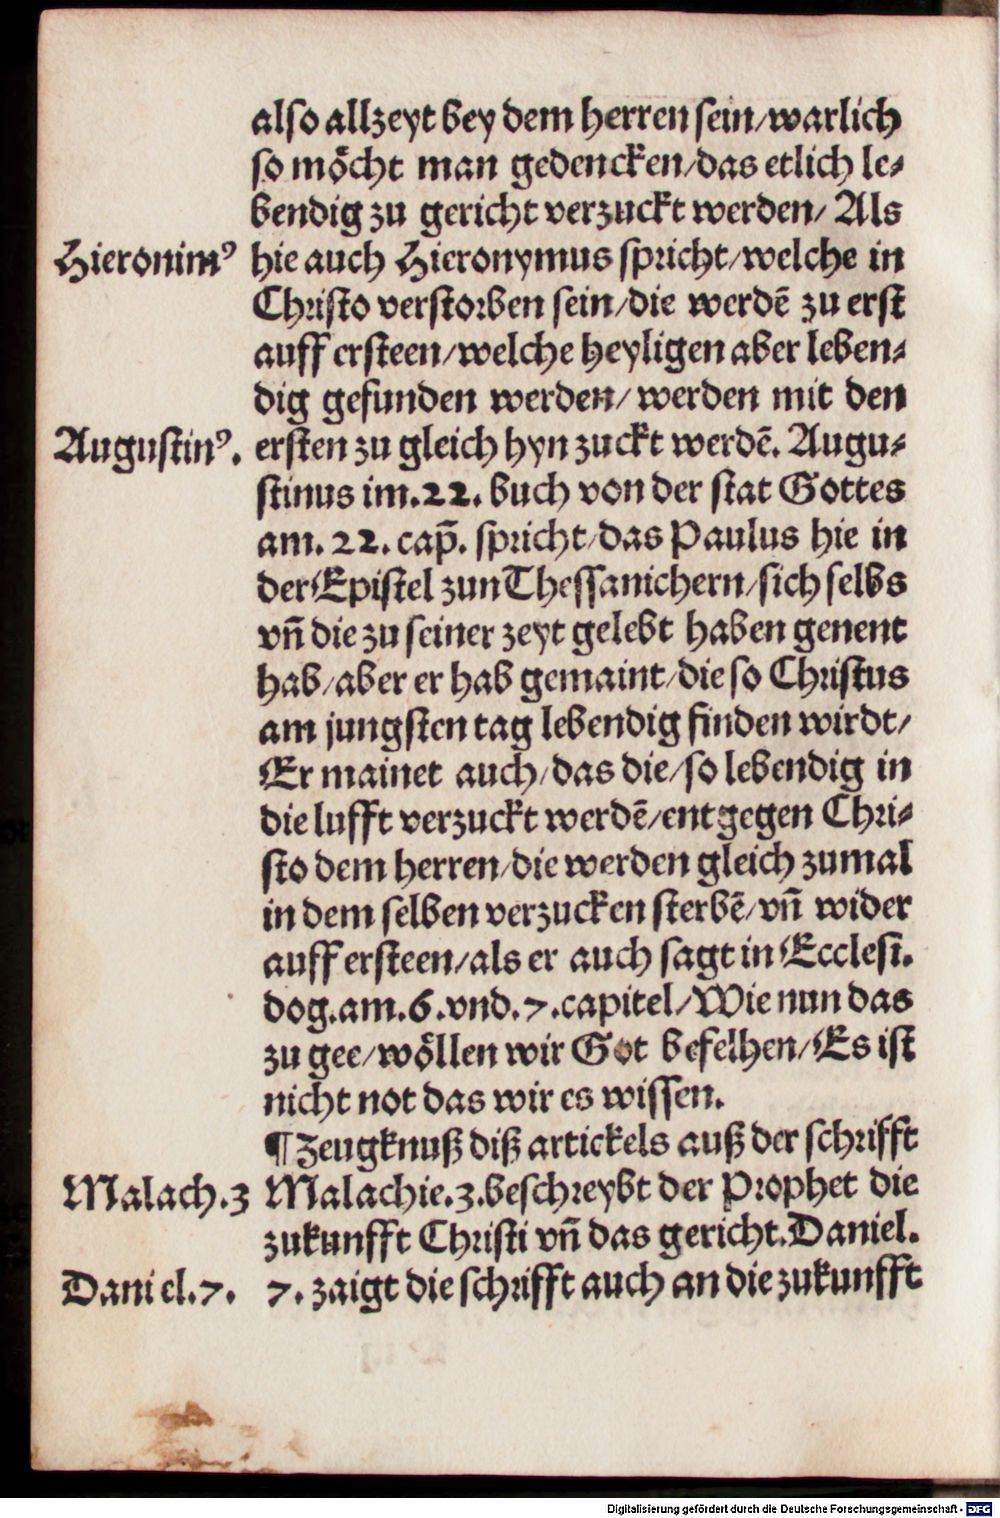 also allzeyt bey dem herren sein/warlich
so mo᷎cht man gedencken/das etlich le⸗
bendig zu gericht verzuckt werden/ Als
Hieronimꝰ hie auch Hieronymus spricht/welche in
Christo verstorben sein/die werdē zu erst
auff ersteen/welche heyligen aber leben⸗
dig gefunden werden/ werden mit den
Augustinꝰ. ersten zu gleich hyn zuckt werdē. Augu⸗
stinus im.22. buch von der stat Gottes
am. 22. cap̄. spricht/das Paulus hie in
der Epistel zun Thessanichern/sich selbs
vn̄ die zu seiner zeyt gelebt haben genent
hab/aber er hab gemaint/die so Christus
am jungsten tag lebendig finden wirdt/
Er mainet auch/das die/so lebendig in
die lufft verzuckt werdē/entgegen Chri⸗
sto dem herren/die werden gleich zumal
in dem selben verzucken sterbē/vn̄ wider
auff ersteen/als er auch sagt in Ecclesi.
dog.am.6.vnd.7.capitel/Wie nun das
zu gee/wo᷎llen wir Got befelhen/Es ist
nicht not das wir es wissen.
¶Zeugknuß diß artickels auß der schrifft
Malach.3 Malachie.3.beschreybt der Prophet die
zukunfft Christi vn̄ das gericht.Daniel.
Daniel.7. 7. zaigt die schrifft auch an die zukunfft
Digitalisierung gefördert durch die Deutsche Forschungsgemeinschaft - DFG